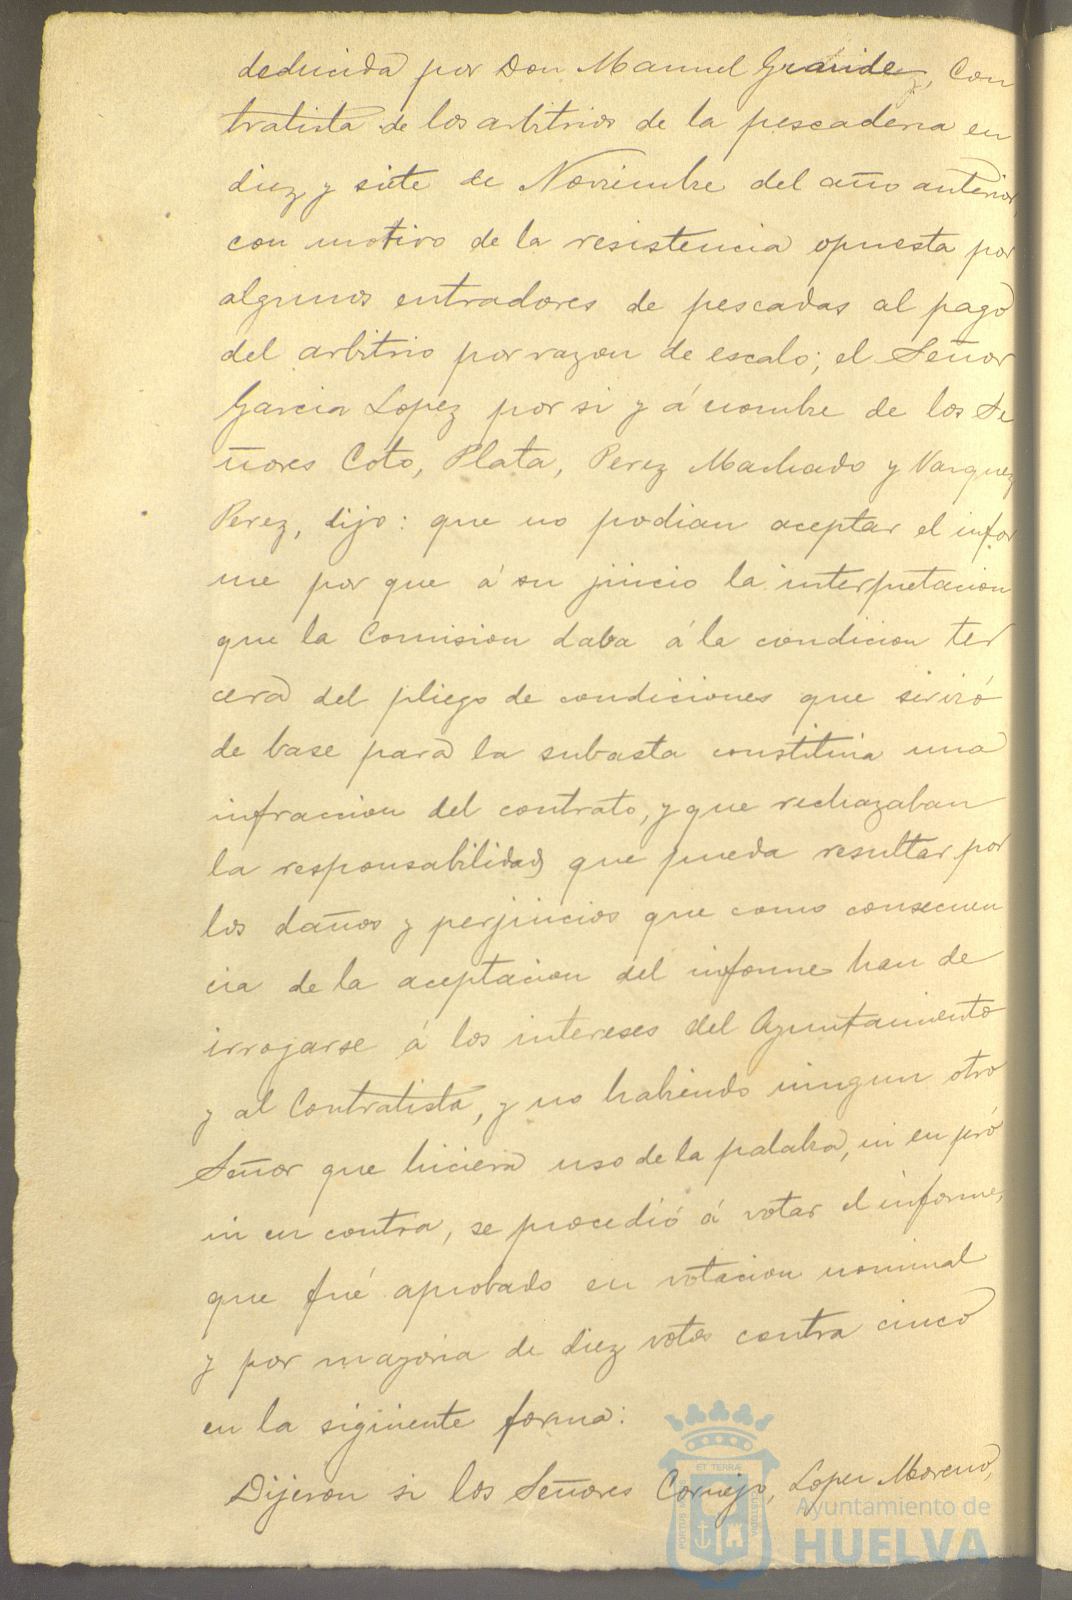 deducida por Don Manuel Grandez, Con
tratista de los arbitrios de la pescaderia en
diez y siete de Noviembre del año anterior,
con motivo de la resistencia opuesta por
algunos entradores de pescadas al pago
del arbitrio por razon de escalo; el Señor
Garcia Lopez por si y á nombre de los Se
ñores Coto, Plata, Perez Machado y Vazquez
Perez, dijo: que no podian aceptar el infor
me por que á su juicio la interpretacion
que la Comision daba á la condicion ter
cera del pliego de condiciones que sirvió
de base para la subasta constituia una
infraccion del contrato, y que rechazaban
la responsabilidad que pueda resultar por
los daños y perjuicios que como consecuen
cia de la aceptacion del informe han de
irrogarse á los intereses del Ayuntamiento
y al Contratista, y no habiendo ningun otro
Señor que hiciera uso de la palabra, ni en pró
ni en contra, se procedió á votar el informe,
que fué aprobado en votacion nominal
y por mayoria de diez votos contra cinco
en la siguiente forma:
Dijeron si los Señores Cornejo, Lopez Moreno,
ET TERRÆ
PORTUS M
CUSTODIA
Ayuntamiento de
HUELVA